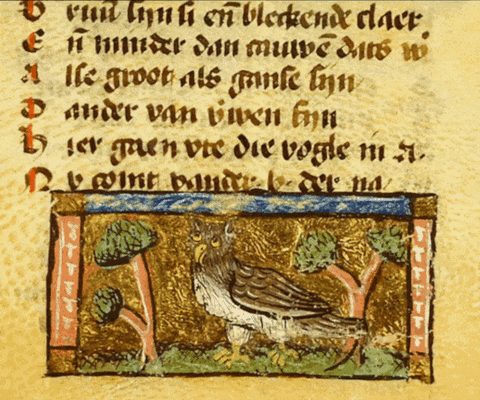 B ruun sijn si eñ bleckende claer
E ñ minder dan cauwē dats w
A lse groot als ganse sijn
D ander van vwen sijn
H ier gaen vte die vogle in a.
N v comt vander .b. der na